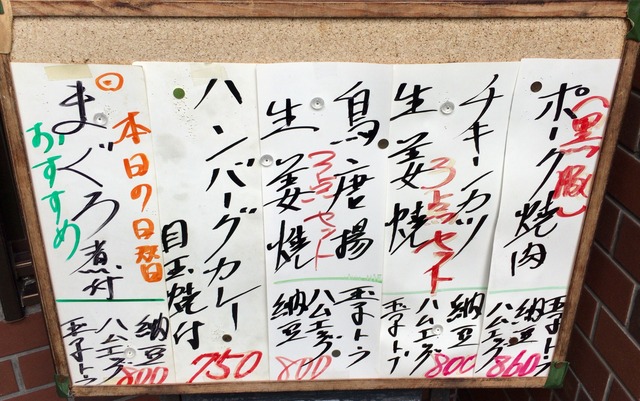 (黒豚)
ポーク焼肉
玉子トフ
納豆
ハムエッグ
860
チキンカツ
3点セット
生姜焼
納豆
ハムエッグ
玉子トフ
800
鳥唐揚
3点セット
生姜焼
玉子トフ
ハムエッグ
納豆
800
ハンバーグカレー
目玉焼付
750
本日の日替
まぐろ煮付
おすすめ
納豆
ハムエッグ
玉子トフ
800